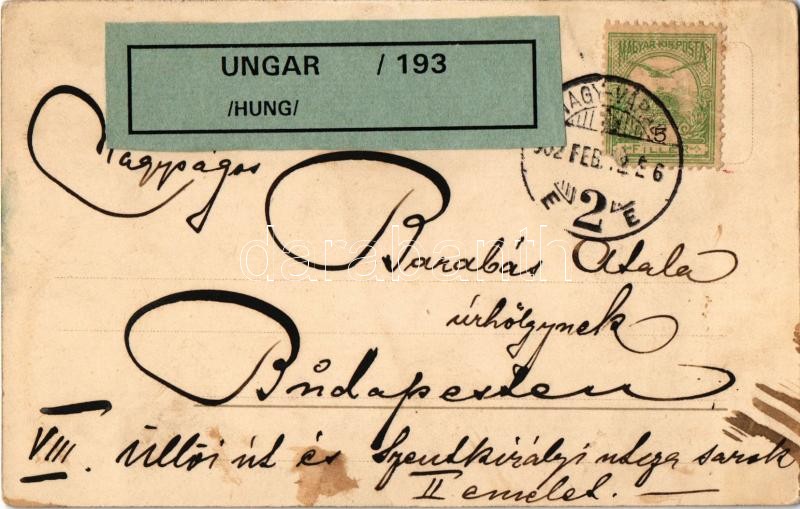 UNGAR / 193
/HUNG/
MAGYAR KIR. POSTA
5
NAGY-VÁR
902 FEB.
E 2 E
Nagyságos
Barabás Atala
úrhölgynek
Budapesten
VIII. Üllői út és Szentkirályi utcza sarok
II emelet. —
darabanth